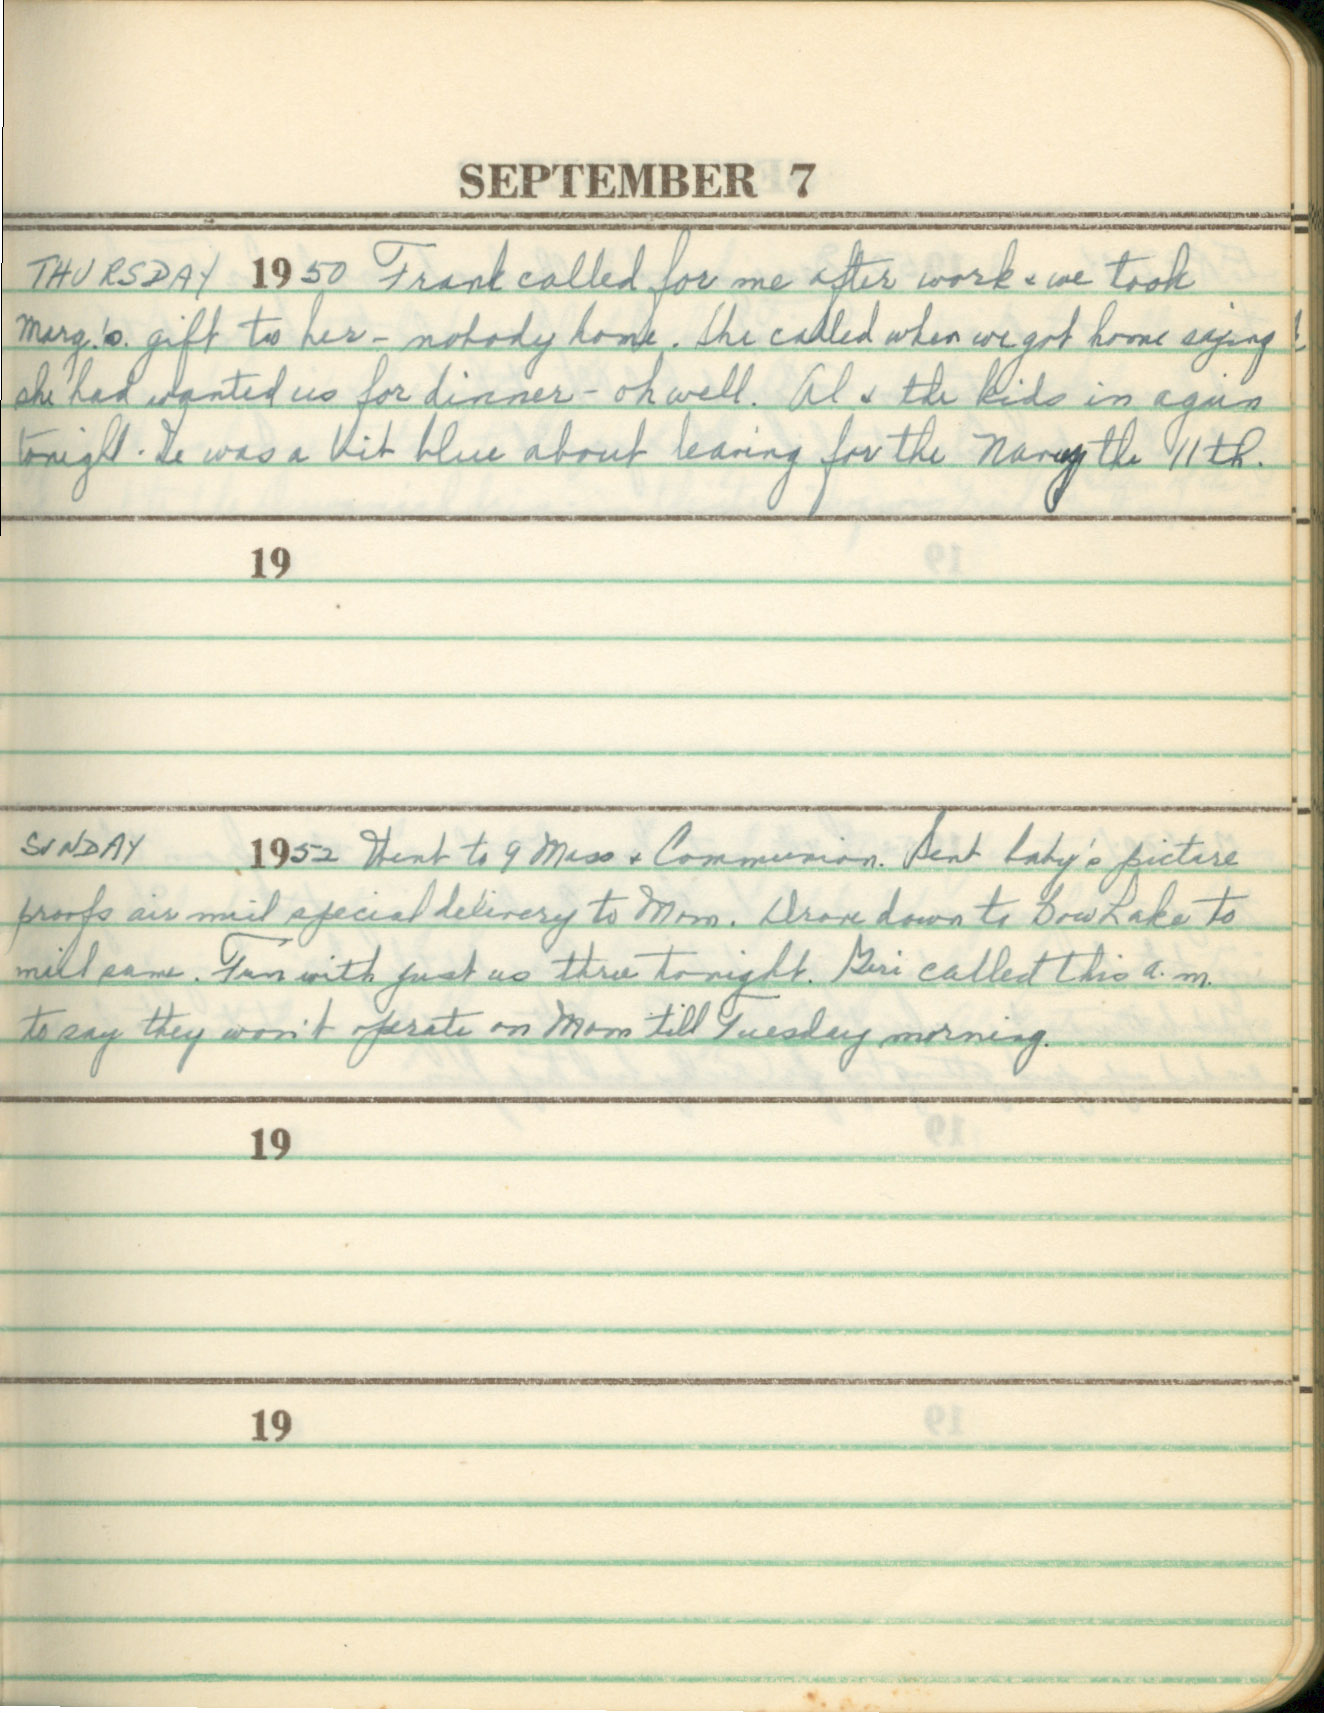 SEPTEMBER 7
THURSDAY 1950 Frank called for me after work & we took
Marg.'s. gift to her - nobody home. She called when we got home saying
she had wanted us for dinner - oh well. Al & the kids in again
tonight. He was a bit blue about leaving for the Navy the 11th.
19
SUNDAY 1952 Went to 9 Mass & Communion. Sent baby's picture
proofs air mail special delivery to Mom. Drove down to Bow Lake to
mail same. Fun with just us three tonight. Geri called this a.m.
to say they won't operate on Mom till Tuesday morning.
19
19